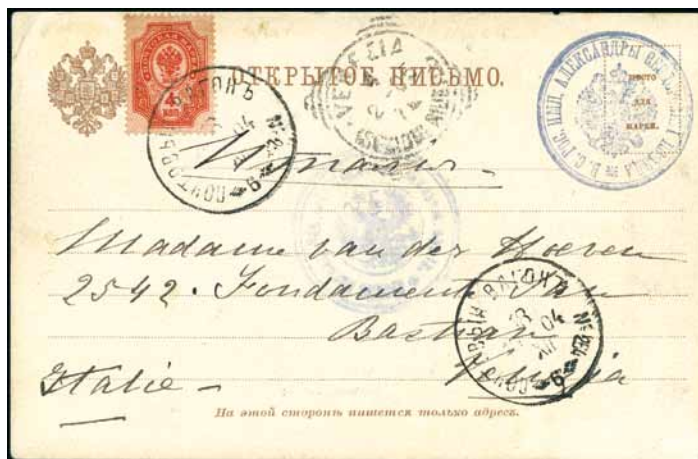 ОТКРЫТОЕ ПИСЬМО.
МѢСТО
ДЛЯ
МАРКИ.
4
ПОЧТОВЫЙ ВАГОНЪ
04
VENEZIA
Италія
Madame van der Hoeven
2542. Fondamenta San
Bastian
Venezia
Italie –
ПОЧТОВЫЙ ВАГОНЪ
04
На этой сторонѣ пишется только адресъ.